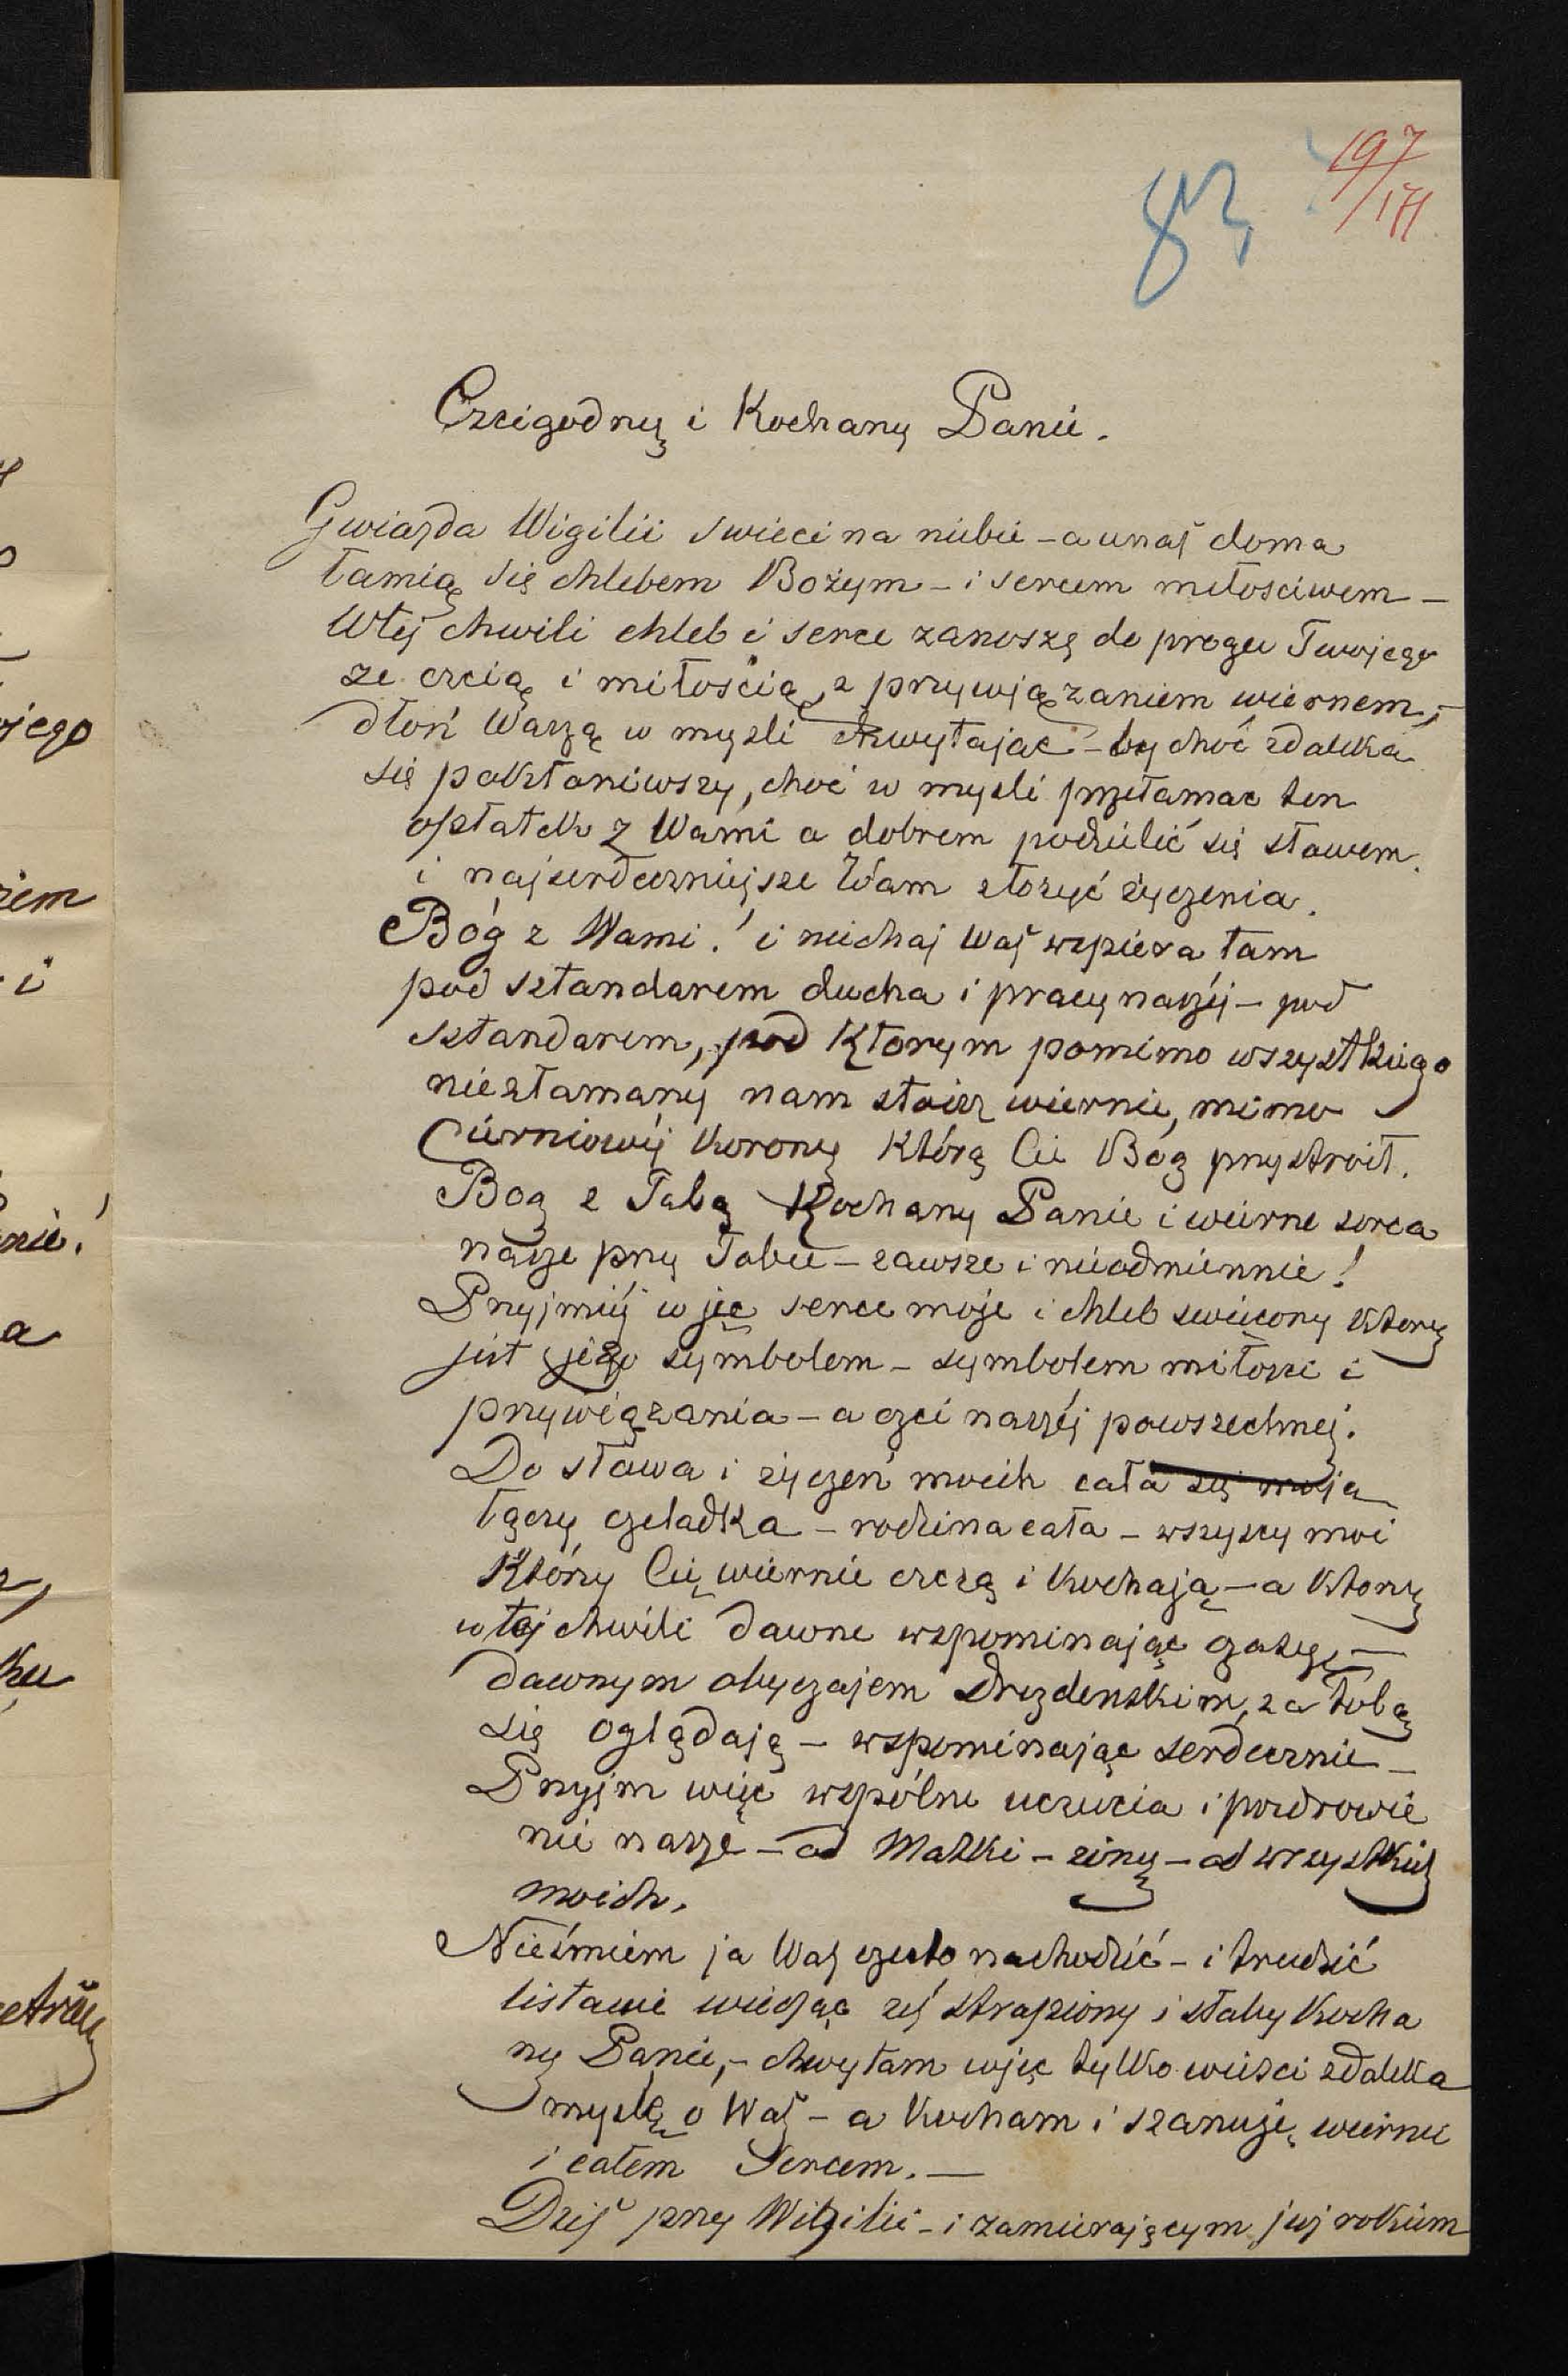 197
/171
83
Czcigodny i Kochany Panie.
Gwiazda Wigilii swieci na niebie - a unas doma
łamią się chlebem Bożym - i sercem miłosciwem -
Wtéj chwili chleb i serce zanoszę do progu Twojego
ze czcią i miłością, z przywiązaniem wiernem, -
dłoń Waszą w mysli chwytając - by choć zdaleka
się pokłoniwszy, choć w mysli przełamac ten
opłatek z Wami a dobrem podzielić się słowem
i najserdeczniejsze Wam złożyć życzenia.
Bóg z Wami! i niechaj Was wspiera tam
pod sztandarem ducha i pracy naszéj - pod
sztandarem, pod Ktorym pomimo wszystkiego
niezłamany nam stoisz wiernie, mimo
Cierniowéj Korony Którą Cie Bóg przystroił.
Bog z Tobą Kochany Panie i wierne serca
nasze przy Tobie - zawsze i nieodmiennie!
Przyjmiéj więc serce moje i chleb swięcony Ktory
jest jego symbolem - symbolem miłosci i
przywiązania - a czci naszéj powszechnej.
Do słowa i życzeń moich cała się moja
łączy czeladka - rodzina cała - wszyscy moi
Którzy Cię wiernie czczą i Kochają - a Ktorzy
w tej chwili dawne wspominając czasy, -
dawnym obyczajem drezdenskim, za tobą
się oglądają - wspominając serdecznie -
Przyjm więc wspólne uczucia i pozdrowie
nie nasze - od Matki - żony - od wszystkich
moich.
Nieśmiem ja Was często nachodzić - i trudzić
listami wiedząc żeś strapiony i słaby Kocha
ny Panie, - chwytam więc tylko wiesci zdaleka
myslę o Was - a Kocham i szanuję wiernie
i całem Sercem. -
Dziś przy Wigilii - i zamierającym już rokiem
ojego
ziem
i
nie!
a
ku